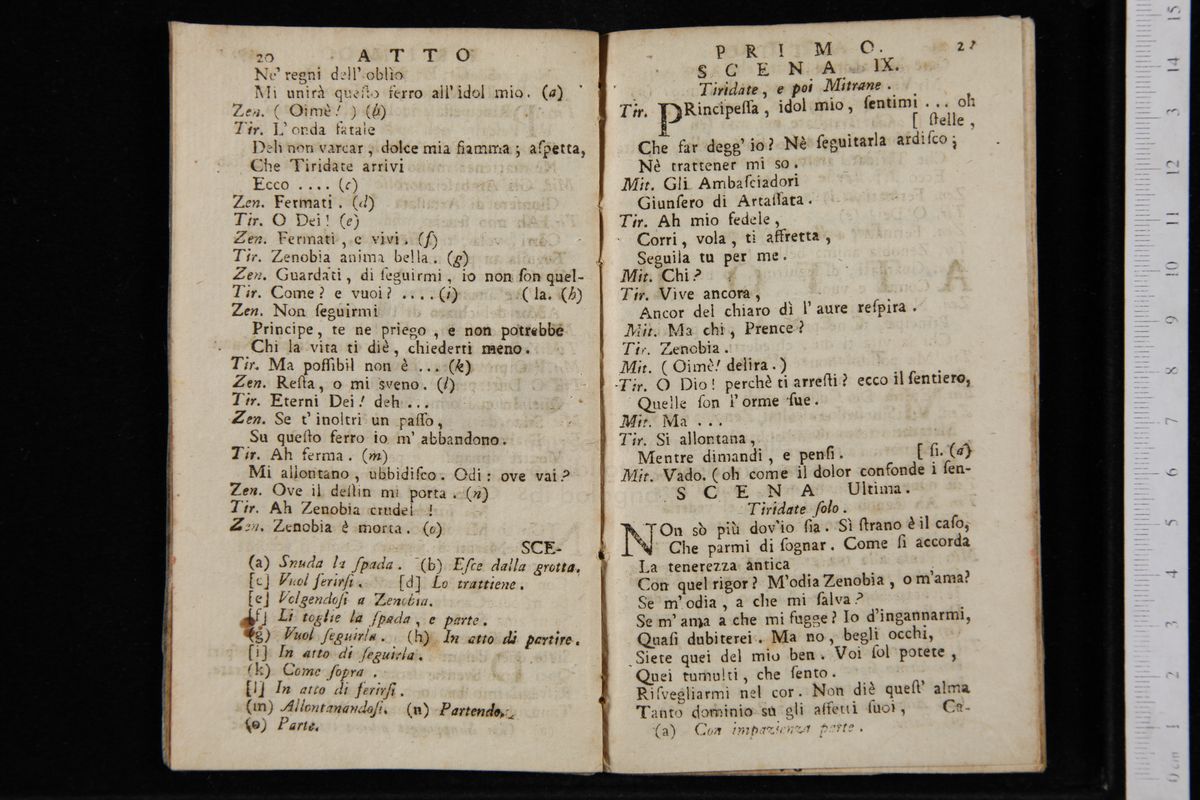 20 ATTO
Ne' regni dell' oblìo
Mi unirà questo ferro all' idol mio. (a)
Zen. ( Oimè! ) (b)
Tir. L' onda fatale
Deh non varcar, dolce mia fiamma; aspetta,
Che Tiridate arrivi
Ecco .... (c)
Zen. Fermati. (d)
Tir. O Dei! (e)
Zen. Fermati, e vivi. (f)
Tir. Zenobia anima bella. (g)
Zen. Guardati, di seguirmi, io non son quel-
Tir. Come? e vuoi? .... (i) ( la. (h)
Zen. Non seguirmi
Principe, te ne priego, e non potrebbe
Chi la vita ti diè, chiederti meno.
Tir. Ma possibil non è ... (k)
Zen. Resta, o mi sveno. (l)
Tir. Eterni Dei! deh ...
Zen. Se t' inoltri un passo,
Su questo ferro io m' abbandono.
Tir. Ah ferma. (m)
Mi allontano, ubbidisco. Odi: ove vai?
Zen. Ove il destin mi porta. (n)
Tir. Ah Zenobia crudel!
Zen. Zenobia è morta. (o)
SCE-
(a) Snuda la spada. (b) Esce dalla grotta.
[c] Vuol ferirsi. [d] Lo trattiene.
[e] Volgendosi a Zenobia.
[f] Li toglie la spada, e parte.
(g) Vuol seguirla. (h) In atto di partire.
[i] In atto di seguirla.
(k) Come sopra.
[l] In atto di ferirsi.
(m) Allontanandosi. (n) Partendo.
(o) Parte.
PRIMO. 21
SCENA IX.
Tiridate, e poi Mitrane.
Tir. PRincipessa, idol mio, sentimi ... oh
[ stelle,
Che far degg' io? Nè seguitarla ardisco;
Nè trattener mi so.
Mit. Gli Ambasciadori
Giunsero di Artassata.
Tir. Ah mio fedele,
Corri, vola, ti affretta,
Seguila tu per me.
Mit. Chi?
Tir. Vive ancora,
Ancor del chiaro dì l' aure respira.
Mit. Ma chi, Prence?
Tir. Zenobia.
Mit. ( Oimè! delira. )
Tir. O Dio! perchè ti arresti? ecco il sentiero,
Quelle son l' orme sue.
Mit. Ma ...
Tir. Si allontana,
Mentre dimandi, e pensi. [ si. (a)
Mit. Vado. (oh come il dolor confonde i sen-
SCENA Ultima.
Tiridate solo.
NOn sò più dov'io sia. Sì strano è il caso,
Che parmi di sognar. Come si accorda
La tenerezza antica
Con quel rigor? M'odia Zenobia, o m'ama?
Se m' odia, a che mi salva?
Se m' ama a che mi fugge? Io d'ingannarmi,
Quasi dubiterei. Ma no, begli occhi,
Siete quei del mio ben. Voi sol potete,
Quei tumulti, che sento.
Risvegliarmi nel cor. Non diè quest' alma
Tanto dominio su gli affetti suoi, Ca-
(a) Con impazienza parte.